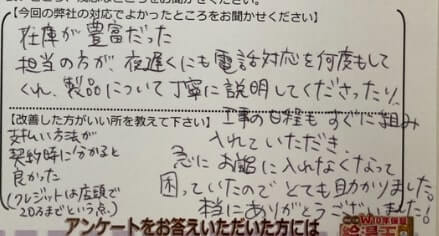 【今回の弊社の対応でよかったところをお聞かせください】
在庫が豊富だった
担当の方が夜遅くにも電話対応を何度もして
くれ、製品について丁寧に説明してくださったり、
工事の日程もすぐに組み
入れていただき、
急にお風呂に入れなくなって
困っていたのでとても助かりました。
本当にありがとうございました!
【改善した方がいい所を教えて下さい】
支払い方法が
契約時に分かると
良かった
(クレジットは店頭で
20万までという点)
アンケートをお答えいただいた方には
W10年保証
給湯王